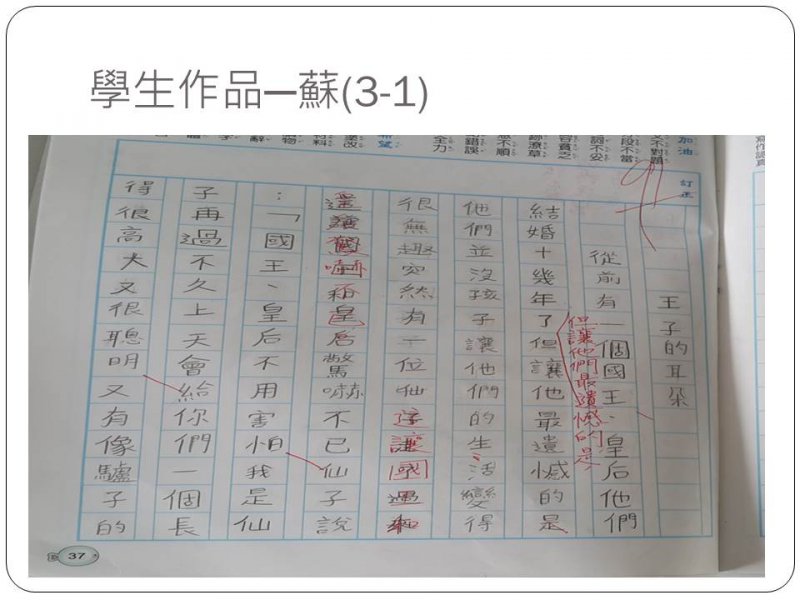 學生作品—蘇(3-1)
加油
訂正
王子的耳朵
從前有一個國王、皇后他們
但讓他們最遺憾的是
結婚十幾年了但讓他最遺憾的是
他們並沒孩子讓他們的生活變得
很無趣突然有一位仙
和皇后驚嚇不已仙子說
：「國王、皇后不用害怕我是仙
子再過不久上天會給你們一個長
得很高大又很聰明又有像驢子的
37